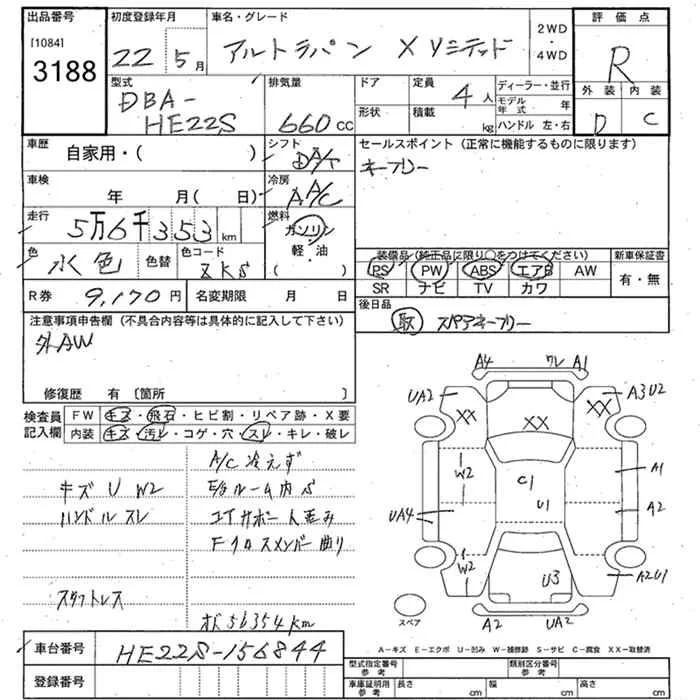 出品番号
[1084]
3188
初度登録年月
22 5月
車名・グレード
アルトラパン X リミテッド
2WD・4WD
評価点
R
外装 内装
D C
型式
DBA-
HE22S
排気量
660 cc
ドア
形状
定員 4人
積載 kg
ディーラー・並行
モデル年式 年
ハンドル 左・右
車歴
自家用・( )
シフト
DA/T
車検
年 月( 日)
冷房
A/C
走行
5万6千353 km
燃料
ガソリン
軽・油
( )
色
水色
色替
色コード
ZKS
R券 9,170円
名変期限 月 日
セールスポイント (正常に機能するものに限ります)
キーフリー
装備品 (純正品に限り○をつけてください)
新車保証書
PS PW ABS エアB AW
SR ナビ TV カワ
有・無
後日品
取 スペアキーフリー
注意事項申告欄 (不具合内容等は具体的に記入して下さい)
外AW
修復歴 有 〔箇所 〕
検査員
記入欄
FW キズ・飛石・ヒビ割・リペア跡・X要
内装 キズ・汚レ・コゲ・穴・スレ・キレ・破レ
A/C 冷えず
キズ U W2
E/gルーム内 S
ハンドル スレ
コアサポート歪み
Fクロスメンバー曲り
スタットレス
メーター56354km
A4 ワレ A1
UA2
A3U2
XX
XX
XX
W2
C1
U1
A1
A2
UA4
W2
U3
A2U1
A2 UA2
スペア
A-キズ E-エクボ U-凹み W-補修跡 S-サビ C-腐食 XX-取替済
車台番号 HE22S-156844
登録番号
型式指定番号
参考
類別区分番号
参考
車庫証明用
参考
長さ cm 幅 cm 高さ cm